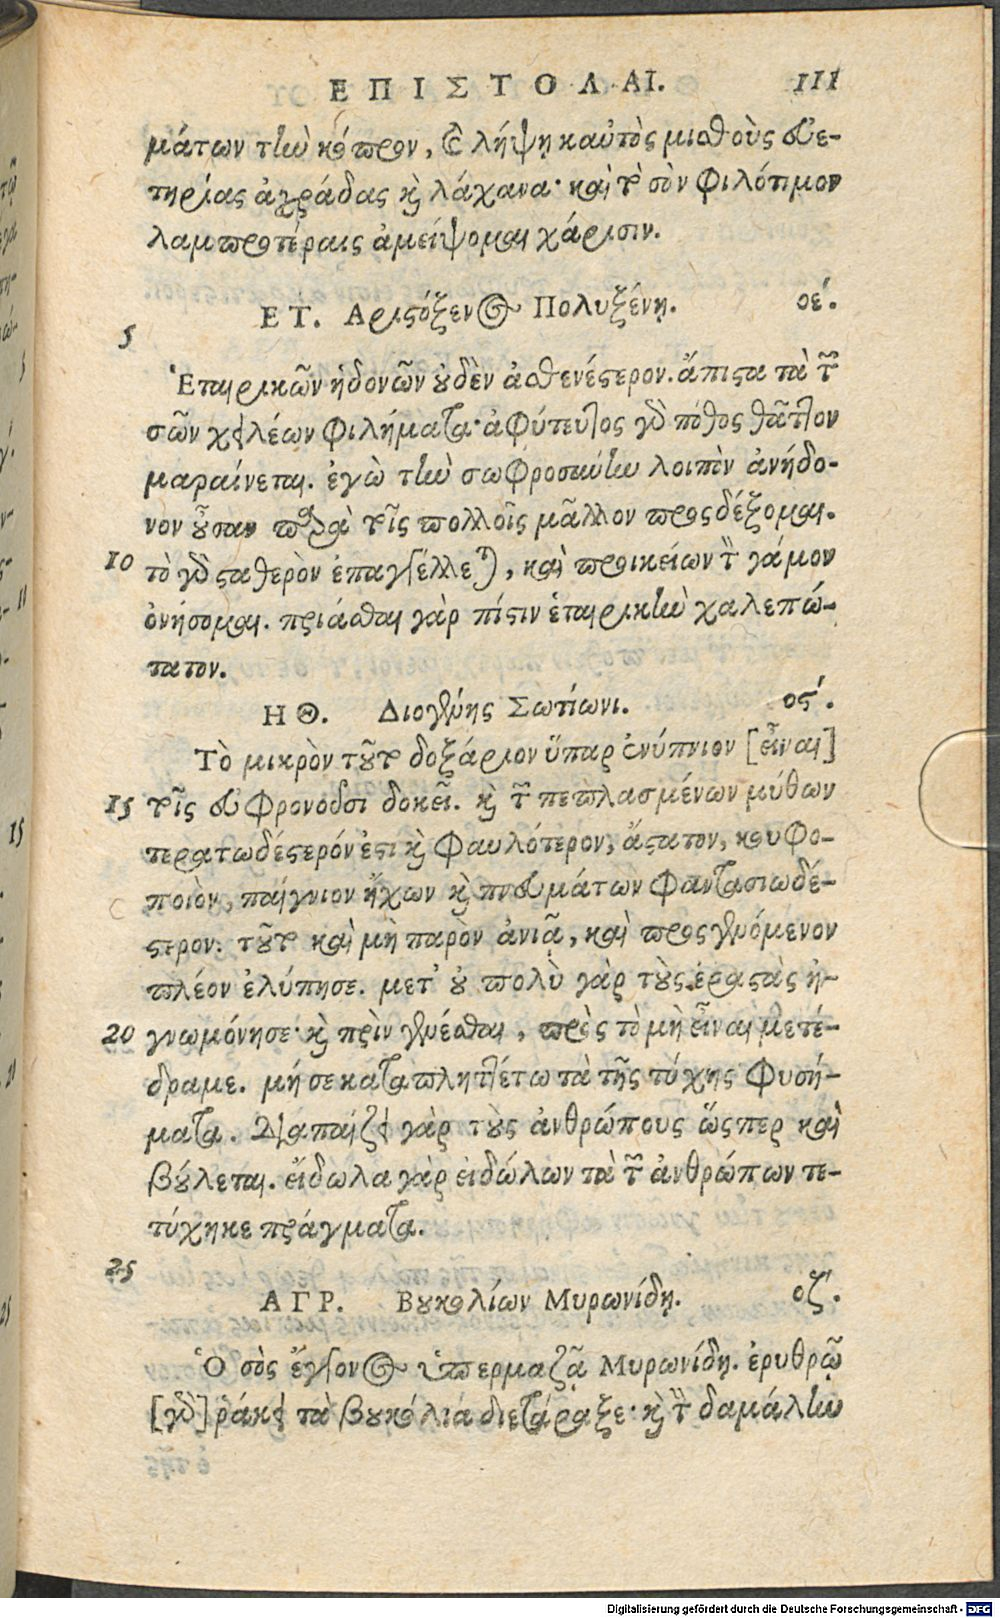 ΕΠΙΣΤΟΛΑΙ. 111
μάτων τὴν κόπρον, καὶ λήψῃ καὐτὸς μισθοὺς εὐε-
τηρίας ἀχράδας καὶ λάχανα· καὶ τὸ σὸν φιλότιμον
λαμπροτέραις ἀμείψομαι χάρισιν.
ΕΤ. Αριστόξενος Πολυξένῃ. οέ.
5
Ἑταιρικῶν ἡδονῶν οὐδὲν ἀσθενέστερον. ἄπιστα τὰ τῶν
σῶν χειλέων φιλήματα· ἀφύτευτος γὰρ πόθος θᾶττον
μαραίνεται. ἐγὼ τὴν σωφροσύνην λοιπὸν ἀνήδο-
νον οὖσαν παρὰ τοῖς πολλοῖς μᾶλλον προσδέξομαι.
10 τὸ γὰρ σταθερὸν ἐπαγγέλλεται, καὶ προικείων τὸν γάμον
ὀνήσομαι. πριάσθαι γὰρ πίστιν ἑταιρικὴν χαλεπώ-
τατον.
ΗΘ. Διογένης Σωτίωνι. οϛ΄.
Τὸ μικρὸν τοῦτο δοξάριον ὕπαρ ἐνύπνιον [εἶναι]
15 τοῖς εὖ φρονοῦσι δοκεῖ. καὶ τῶν πεπλασμένων μύθων
τερατωδέστερόν ἐστι καὶ φαυλότερον, ἄστατον, κουφο-
ποιὸν, παίγνιον ἤχων καὶ πνευμάτων φαντασιωδέ-
στερον. τοῦτο καὶ μὴ παρὸν ἀνιᾷ, καὶ προσγενόμενον
πλέον ἐλύπησε. μετ' οὐ πολὺ γὰρ τοὺς ἐραστὰς ἠ-
20 γνωμόνησε· καὶ πρὶν γενέσθαι, πρὸς τὸ μὴ εἶναι μετέ-
δραμε. μή σε καταπληττέτω τὰ τῆς τύχης φυσή-
ματα. διαπαίζει γὰρ τοὺς ἀνθρώπους ὥσπερ καὶ
βούλεται. εἴδωλα γὰρ εἰδώλων τὰ τῶν ἀνθρώπων τε-
τύχηκε πράγματα.
25
ΑΓΡ. Βουκολίων Μυρωνίδῃ. οζ΄.
Ὁ σὸς ἔγγονος ὑπερμαζᾷ Μυρωνίδη. ἐρυθρῷ
[γὰρ] ῥάκει τὰ βουκόλια διετάραξε· καὶ τὴν δαμάλην